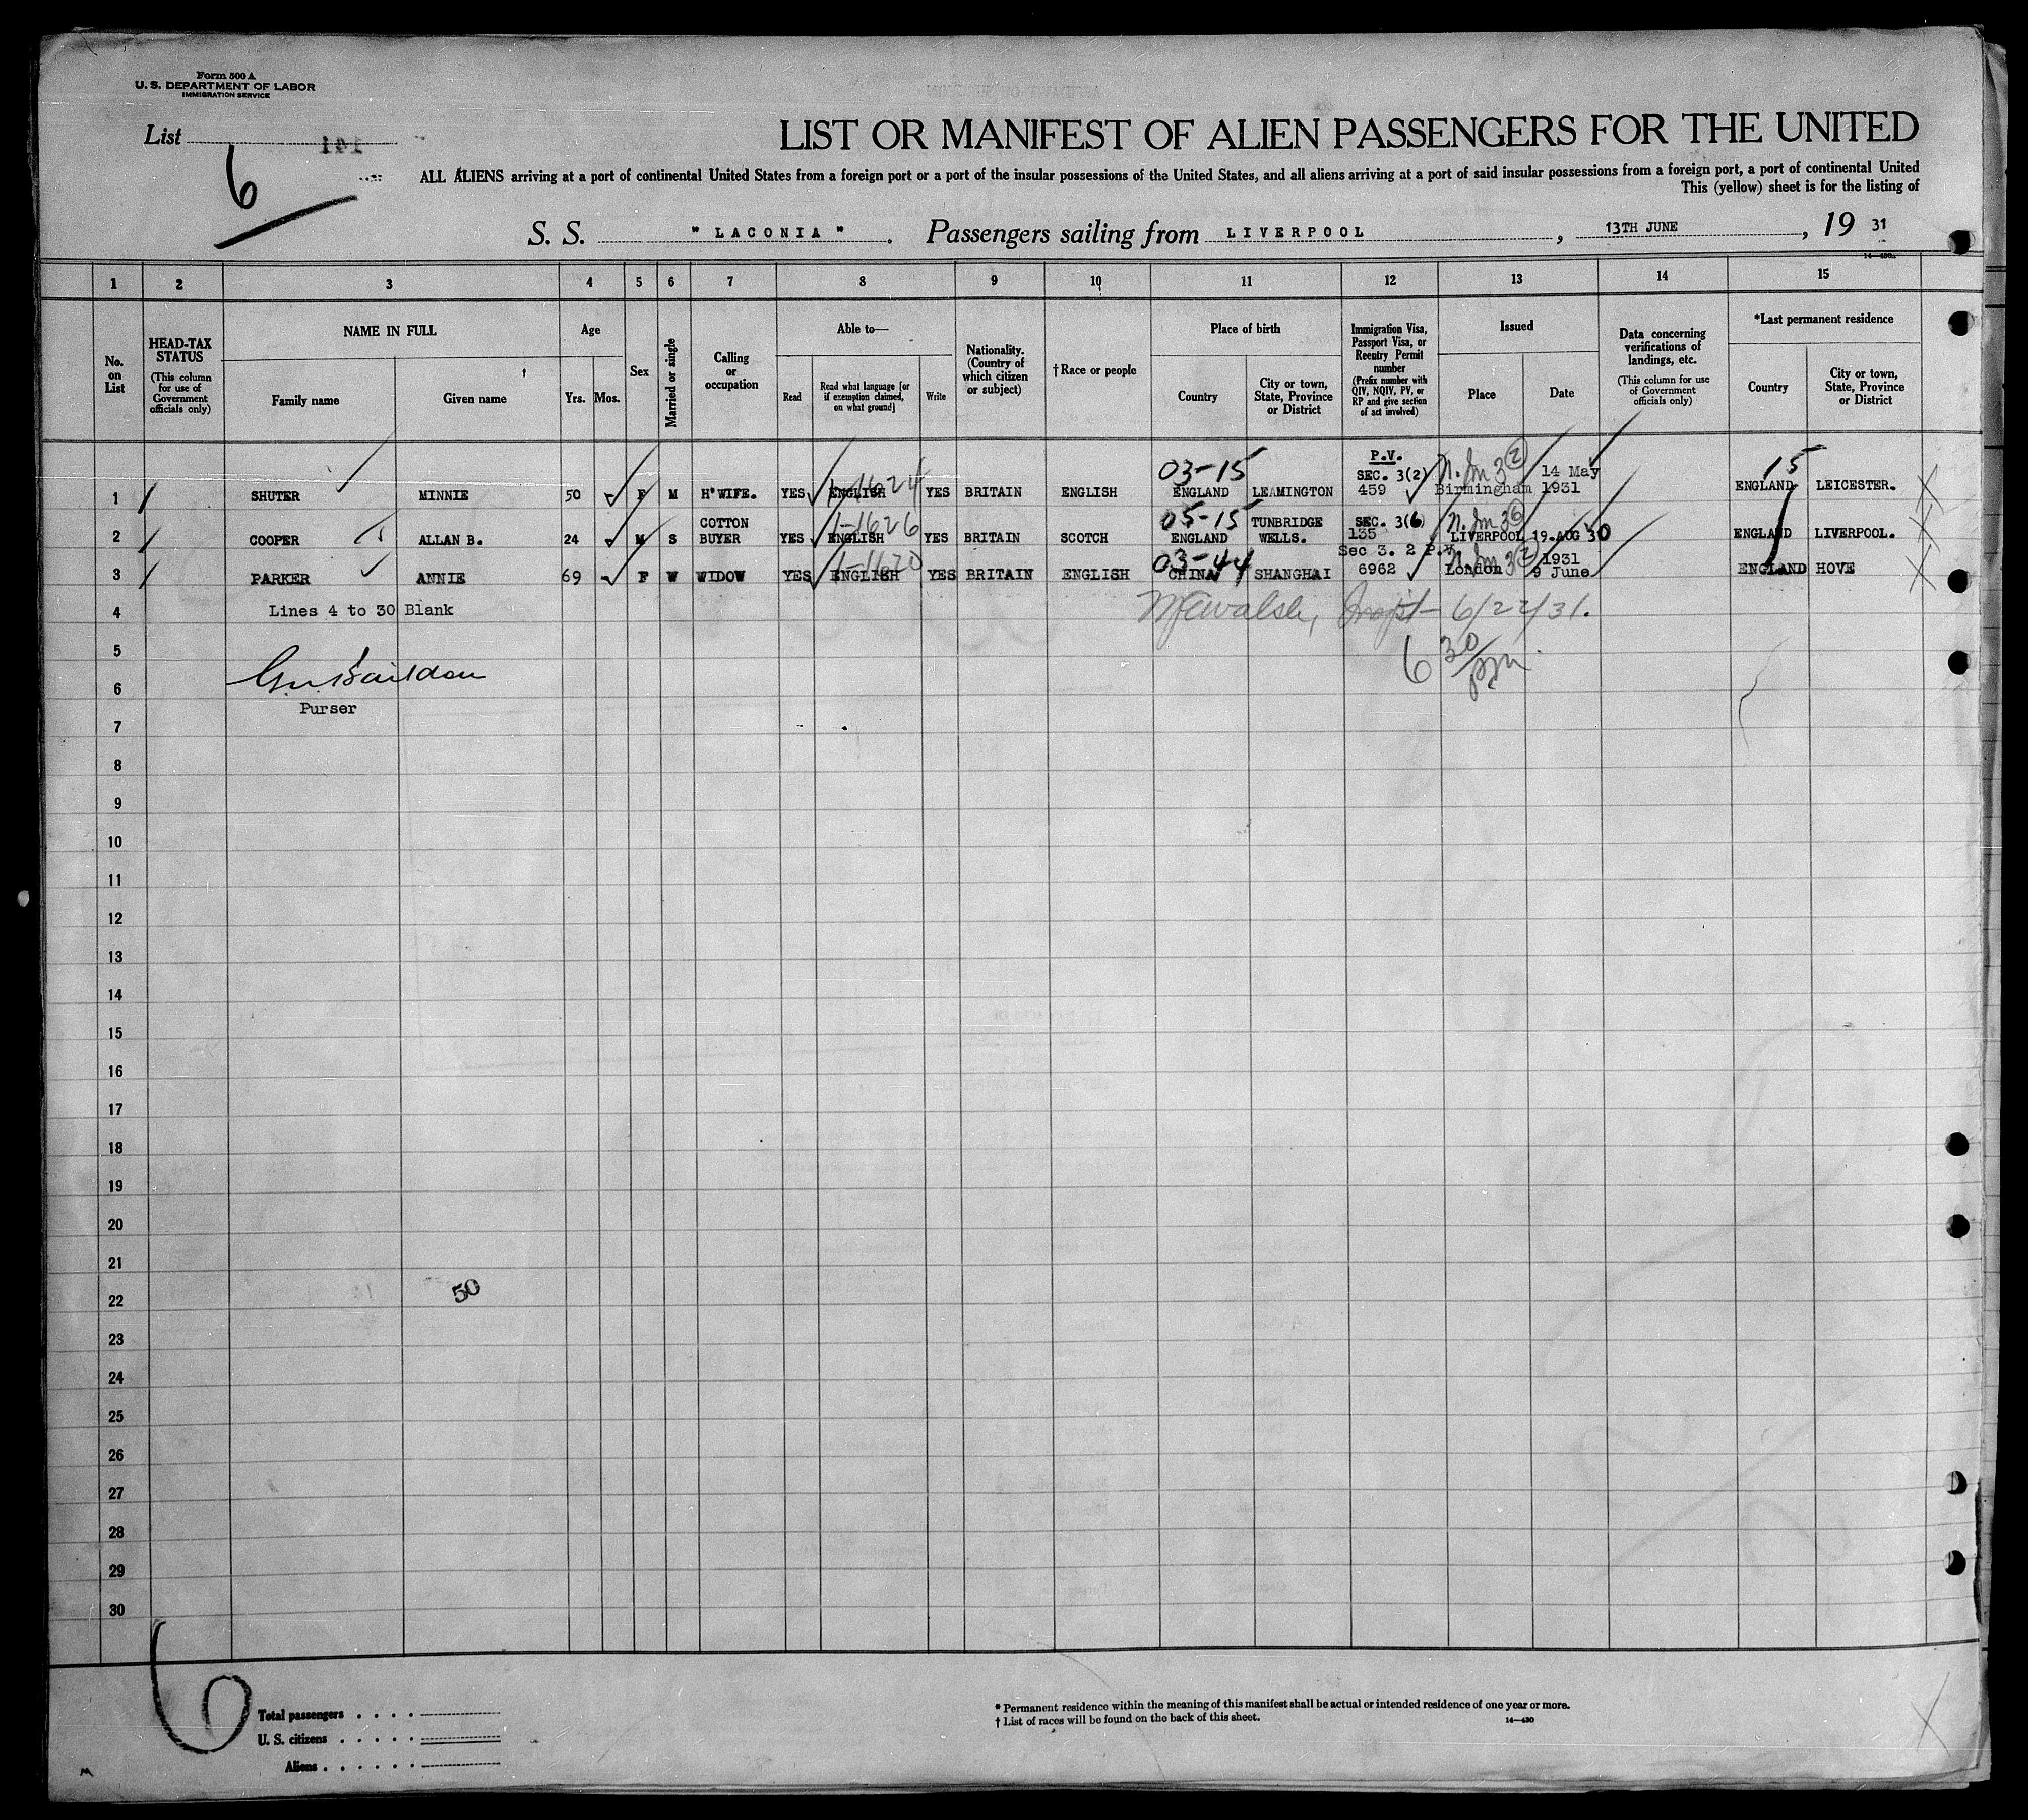 Form 500 A
U. S. DEPARTMENT OF LABOR
IMMIGRATION SERVICE
List
6
LIST OR MANIFEST OF ALIEN PASSENGERS FOR THE UNITED
ALL ALIENS arriving at a port of continental United States from a foreign port or a port of the insular possessions of the United States, and all aliens arriving at a port of said insular possessions from a foreign port, a port of continental United
This (yellow) sheet is for the listing of
S. S. " LACONIA ". Passengers sailing from LIVERPOOL, 13TH JUNE, 19 31
1 2 3 4 5 6 7 8 9 10 11 12 13 14 15
No. on List
HEAD-TAX STATUS
(This column for use of Government officials only)
NAME IN FULL
Family name
Given name †
Age
Yrs. Mos.
Sex
Married or single
Calling or occupation
Able to—
Read
Read what language [or if exemption claimed, on what ground]
Write
Nationality. (Country of which citizen or subject)
† Race or people
Place of birth
Country
City or town, State, Province or District
Immigration Visa, Passport Visa, or Reentry Permit number
(Prefix number with QIV, NQIV, PV, or RP and give section of act involved)
Issued
Place
Date
Data concerning verifications of landings, etc.
(This column for use of Government officials only)
*Last permanent residence
Country
City or town, State, Province or District
03-15 P.V. SEC. 3(2) 14 May 15
1 SHUTER MINNIE 50 F M H'WIFE. YES ENGLISH YES BRITAIN ENGLISH ENGLAND LEAMINGTON 459 Birmingham 1931 ENGLAND LEICESTER.
COTTON 1-1626 05-15 TUNBRIDGE SEC. 3(6)
2 COOPER ALLAN B. 24 M S BUYER YES ENGLISH YES BRITAIN SCOTCH ENGLAND WELLS. 135 LIVERPOOL 19.AUG 30 ENGLAND LIVERPOOL.
03-44 Sec 3. 2 P.V. 1931
3 PARKER ANNIE 69 F W WIDOW YES ENGLISH YES BRITAIN ENGLISH CHINA SHANGHAI 6962 London 9 June ENGLAND HOVE
4 Lines 4 to 30 Blank
Walsh, Inspt- 6/22/31.
5
6 30/pm.
6
Purser
7
8
9
10
11
12
13
14
15
16
17
18
19
20
21
22 50
23
24
25
26
27
28
29
30
6
Total passengers
U. S. citizens
Aliens
* Permanent residence within the meaning of this manifest shall be actual or intended residence of one year or more.
† List of races will be found on the back of this sheet.
14—430